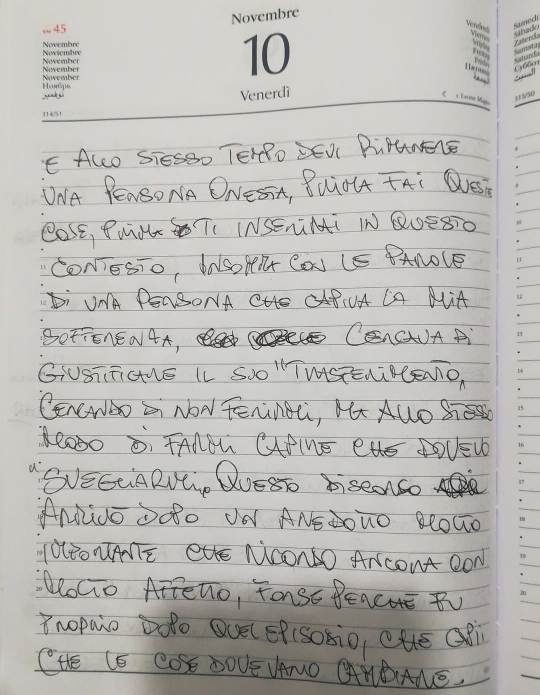 em 45
Novembre
Novembre
Noviembre
November
November
November
Ноябрь
نوفمبر
314/51
Novembre
10
Venerdì
Vendredi
Viernes
Friday
Freitag
Пятница
الجمعة
Samedi
Sábado
Zaterdag
Saturday
Samstag
Суббота
السبت
315/50
E ALLO STESSO TEMPO DEVI RIMANERE
UNA PERSONA ONESTA, PRIMA FAI QUESTE
COSE, PRIMA TI INSERIRAI IN QUESTO
CONTESTO, INSOMMA CON LE PAROLE
DI UNA PERSONA CHE CAPIVA LA MIA
SOFFERENZA, CERCAVA DI
GIUSTIFICARE IL SUO "TRASFERIMENTO,
CERCANDO DI NON FERIRMI, MA ALLO STESSO
MODO DI FARMI CAPIRE CHE DOVEVO
"SVEGLIARMI". QUESTO DISCORSO
ARRIVÒ DOPO UN ANEDOTTO MOLTO
IMPORTANTE CHE RICORDO ANCORA CON
MOLTO AFFETTO, FORSE PERCHÉ FU
PROPRIO DOPO QUEL EPISODIO, CHE CAPII
CHE LE COSE DOVEVANO CAMBIARE.